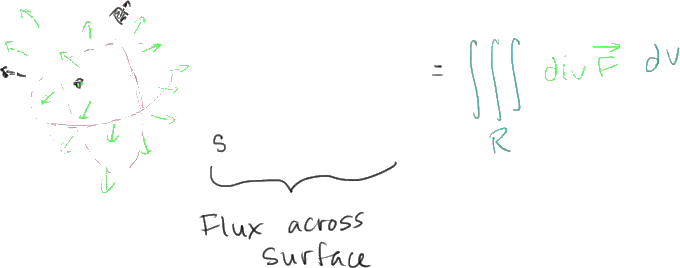 = ∭ div F⃗ dV
R
S
Flux across
surface